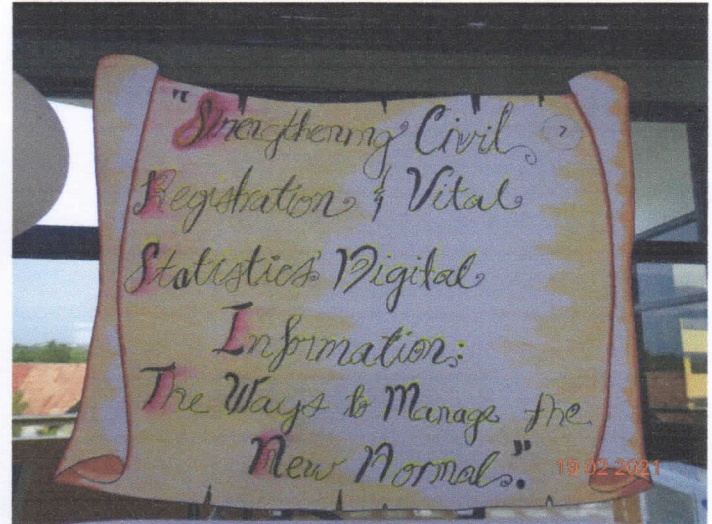 "Strengthening Civil
Registration & Vital
Statistics Digital
Information:
The Ways to Manage the
New Normal."
7
19 02 2021